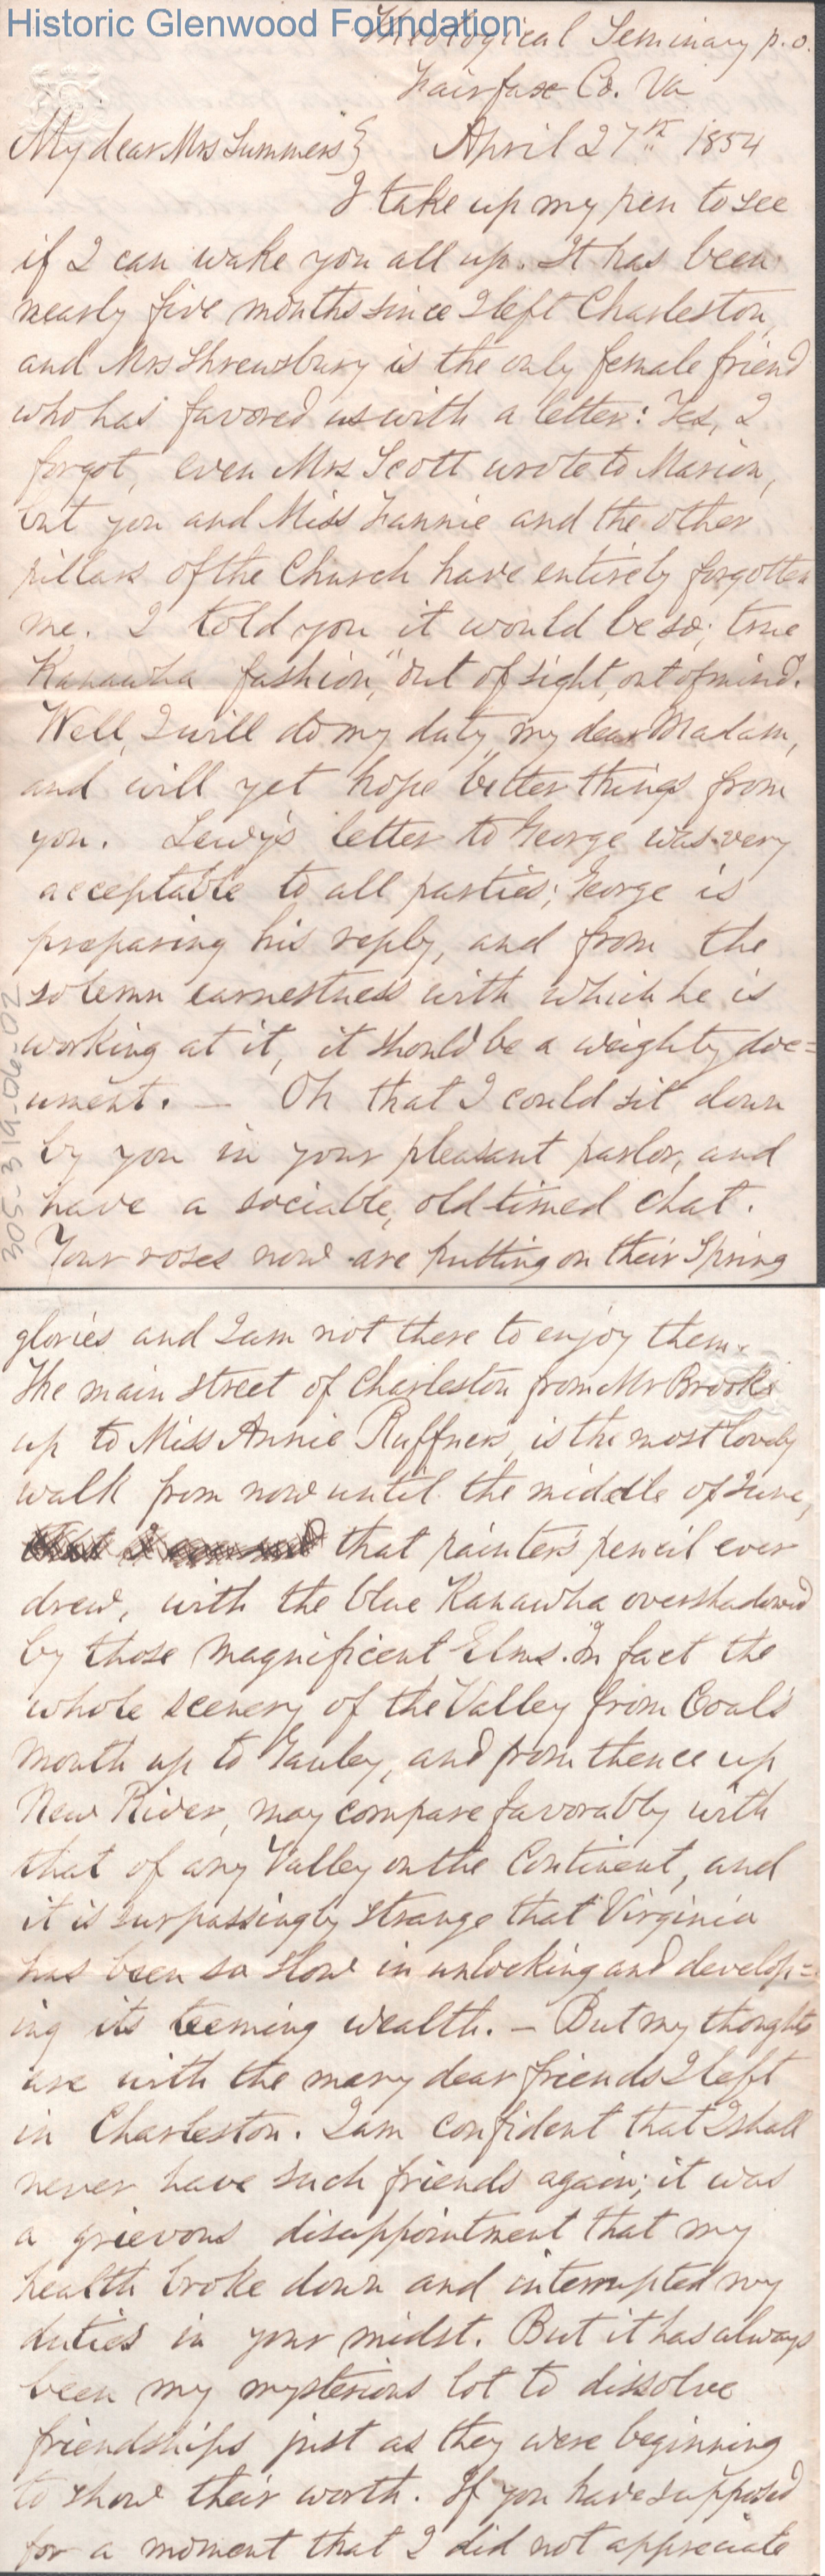 Historic Glenwood Foundation
Theological Seminary p.o.
Fairfax Co. Va
My dear Mrs Summers } April 27th 1854
I take up my pen to see
if I can wake you all up. It has been
nearly five months since I left Charleston,
and Mrs Shrewsbury is the only female friend
who has favored us with a letter: Yes, I
forgot, even Mrs Scott wrote to Marion,
but you and Miss Fannie and the other
pillars of the Church have entirely forgotten
me. I told you it would be so; true
Kanawha fashion, "out of sight, out of mind."
Well, I will do my duty, my dear Madam,
and will yet hope "better things from
you. Lewy's letter to George was very
acceptable to all parties; George is
preparing his reply, and from the
solemn earnestness with which he is
working at it, it should be a weighty doc=
ument. — Oh that I could sit down
by you in your pleasant parlor, and
have a sociable, old-timed chat.
Your roses now are putting on their Spring
305-319-06-02
glories and I am not there to enjoy them.
The main street of Charleston from Mr Brooks
up to Miss Annie Ruffners, is the most lovely
walk from now until the middle of June,
that painter's pencil ever
drew, with the blue Kanawha overshadowed
by those magnificent Elms. In fact the
whole scenery of the Valley from Coal's
Mouth up to Gauley, and from thence up
New River, may compare favorably with
that of any Valley on the Continent, and
it is surpassingly strange that Virginia
has been so slow in unlocking and develop=
ing its teeming wealth. — But my thoughts
are with the many dear friends I left
in Charleston. I am confident that I shall
never have such friends again; it was
a grievous disappointment that my
health broke down and interrupted my
duties in your midst. But it has always
been my mysterious lot to dissolve
friendships just as they were beginning
to show their worth. If you have supposed
for a moment that I did not appreciate